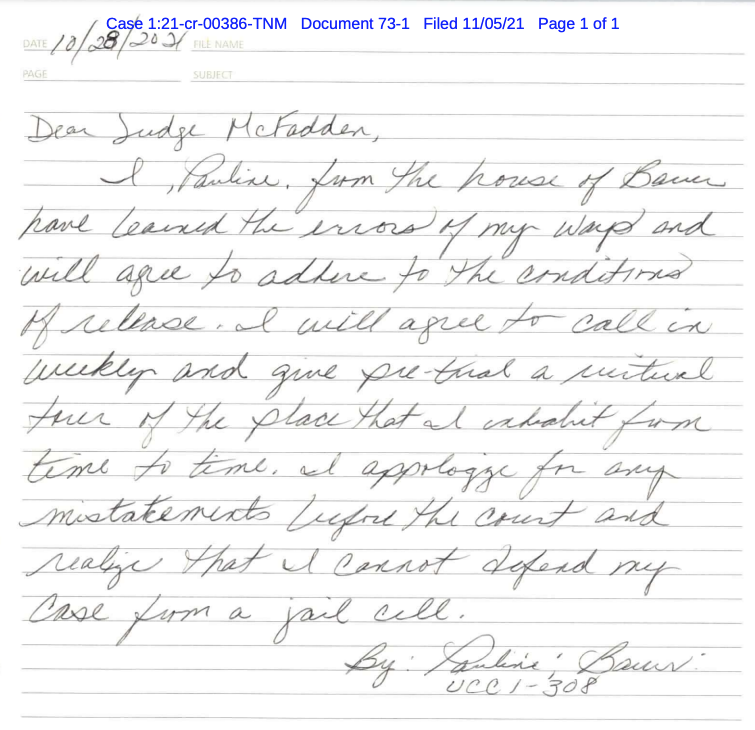 Case 1:21-cr-00386-TNM Document 73-1 Filed 11/05/21 Page 1 of 1
DATE 10/28/2021 FILE NAME
PAGE SUBJECT
Dear Judge McFadden,
I, Pauline, from the house of Bauer
have learned the errors of my ways and
will agree to adhere to the conditions
of release. I will agree to call in
weekly and give pre-trial a virtual
tour of the place that I inhabit from
time to time. I appologze for any
mistatements before the court and
realize that I cannot defend my
case from a jail cell.
By: Pauline; Bauer:
UCC 1-308